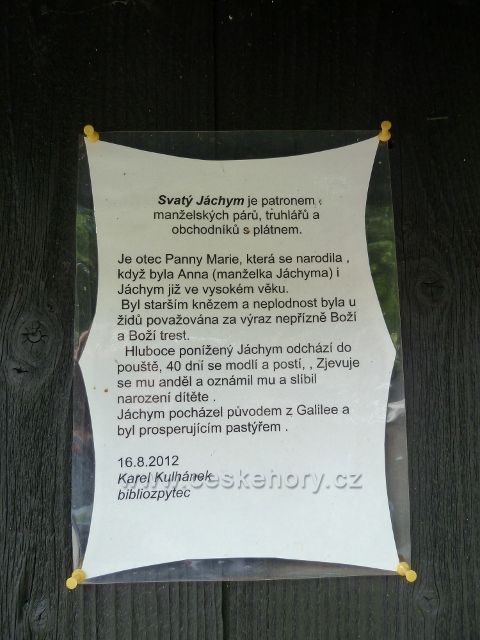 Svatý Jáchym je patronem
manželských párů, truhlářů a
obchodníků s plátnem.
Je otec Panny Marie, která se narodila ,
když byla Anna (manželka Jáchyma) i
Jáchym již ve vysokém věku.
Byl starším knězem a neplodnost byla u
židů považována za výraz nepřízně Boží
a Boží trest.
Hluboce ponížený Jáchym odchází do
pouště, 40 dní se modlí a postí, , Zjevuje
se mu anděl a oznámil mu a slíbil
narození dítěte .
Jáchym pocházel původem z Galilee a
byl prosperujícím pastýřem .
16.8.2012
Karel Kulhánek
bibliozpytec
www.ceskehory.cz